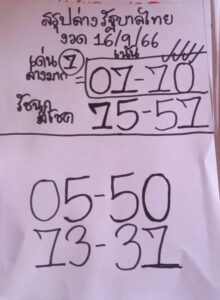 สรุปล่างรัฐบาลไทย
งวด 16/9/66
เน้น
เด่น 7
ล่างมาก
07-70
รัชนก
มีโชค
75-57
05-50
73-37